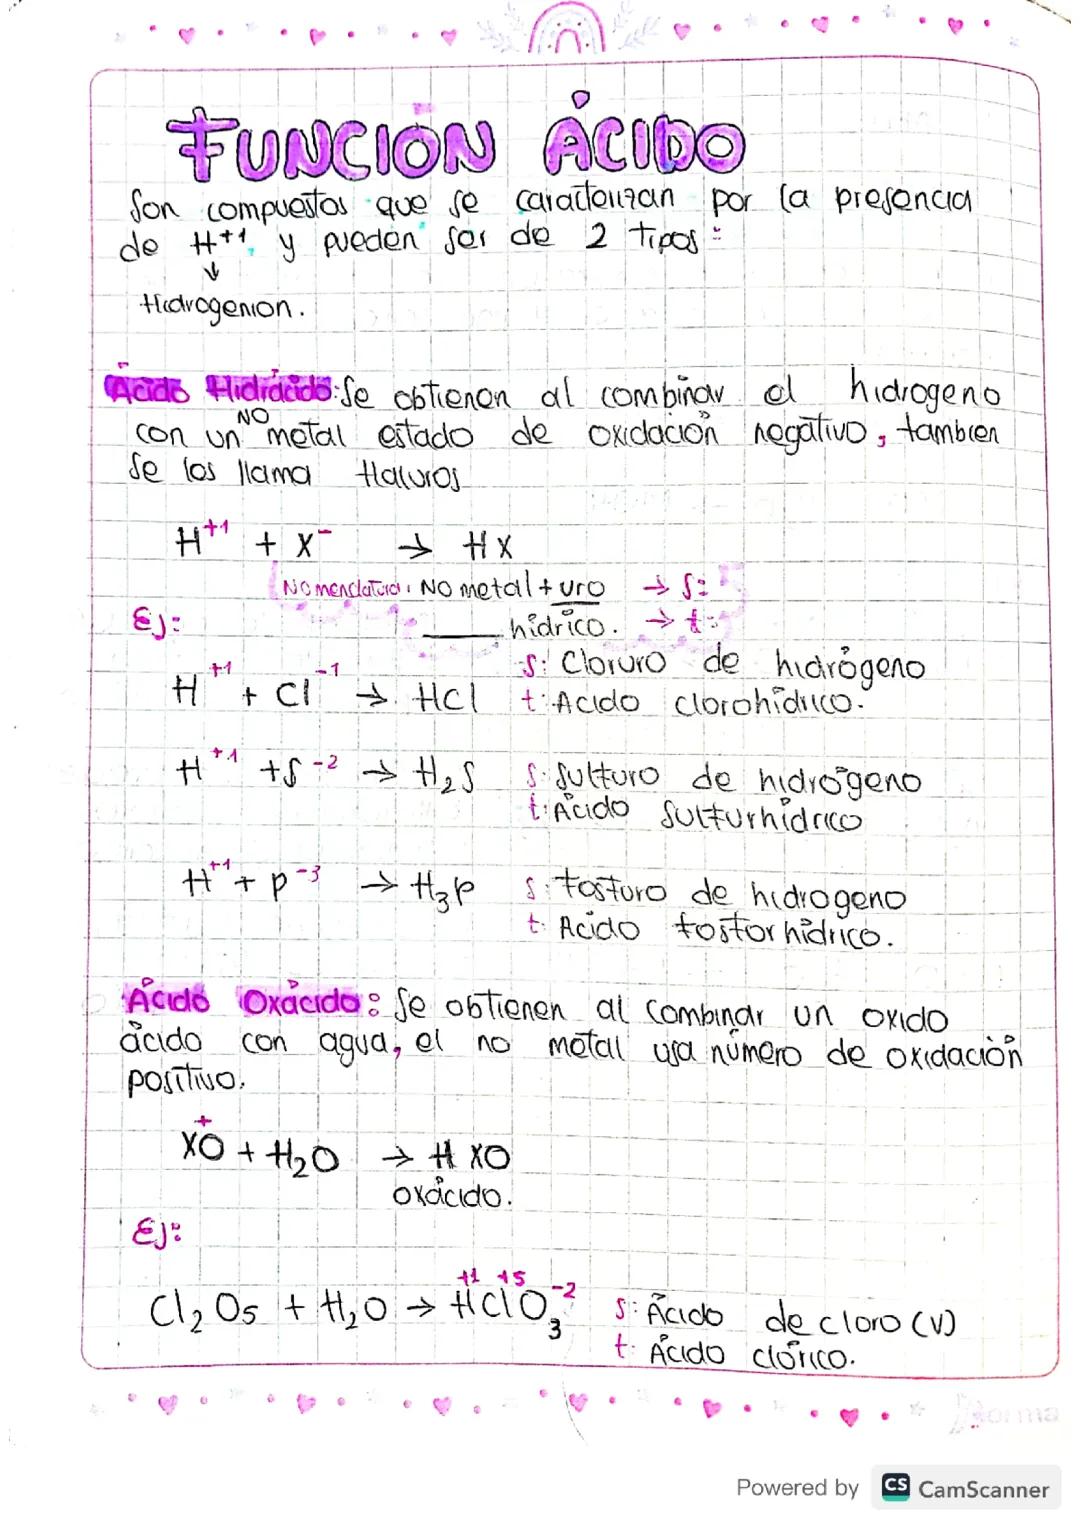 FUNCIÓN ÁCIDO
Son compuestos que se caracterizan por la presencia
de H⁺¹, y pueden ser de 2 tipos:
↓
Hidrogenion.
Ácido Hidrácido: Se obtienen al combinar el hidrogeno
con un NO metal estado de oxidación negativo, tambien
se los llama Haluros
H⁺¹ + X⁻ → HX
Nomenclatura: NO metal + uro → S:
Ej: ____ hídrico. → t:
H⁺¹ + Cl⁻¹ → HCl S: Cloruro de hidrógeno
t: Acido clorohídrico.
H⁺¹ + S⁻² → H₂S S: Sulfuro de hidrógeno
t: Ácido Sulfurhídrico
H⁺¹ + P⁻³ → H₃P S: Fosfuro de hidrogeno
t: Acido fosforhídrico.
Ácido Oxácido: Se obtienen al combinar un oxido
ácido con agua, el no metal usa número de oxidación
positivo.
X⁺O + H₂O → H XO
oxácido.
Ej:
Cl₂O₅ + H₂O → H⁺¹Cl⁺⁵O₃⁻² S: Ácido de cloro (V)
t: Ácido clórico.
norma
Powered by CS CamScanner